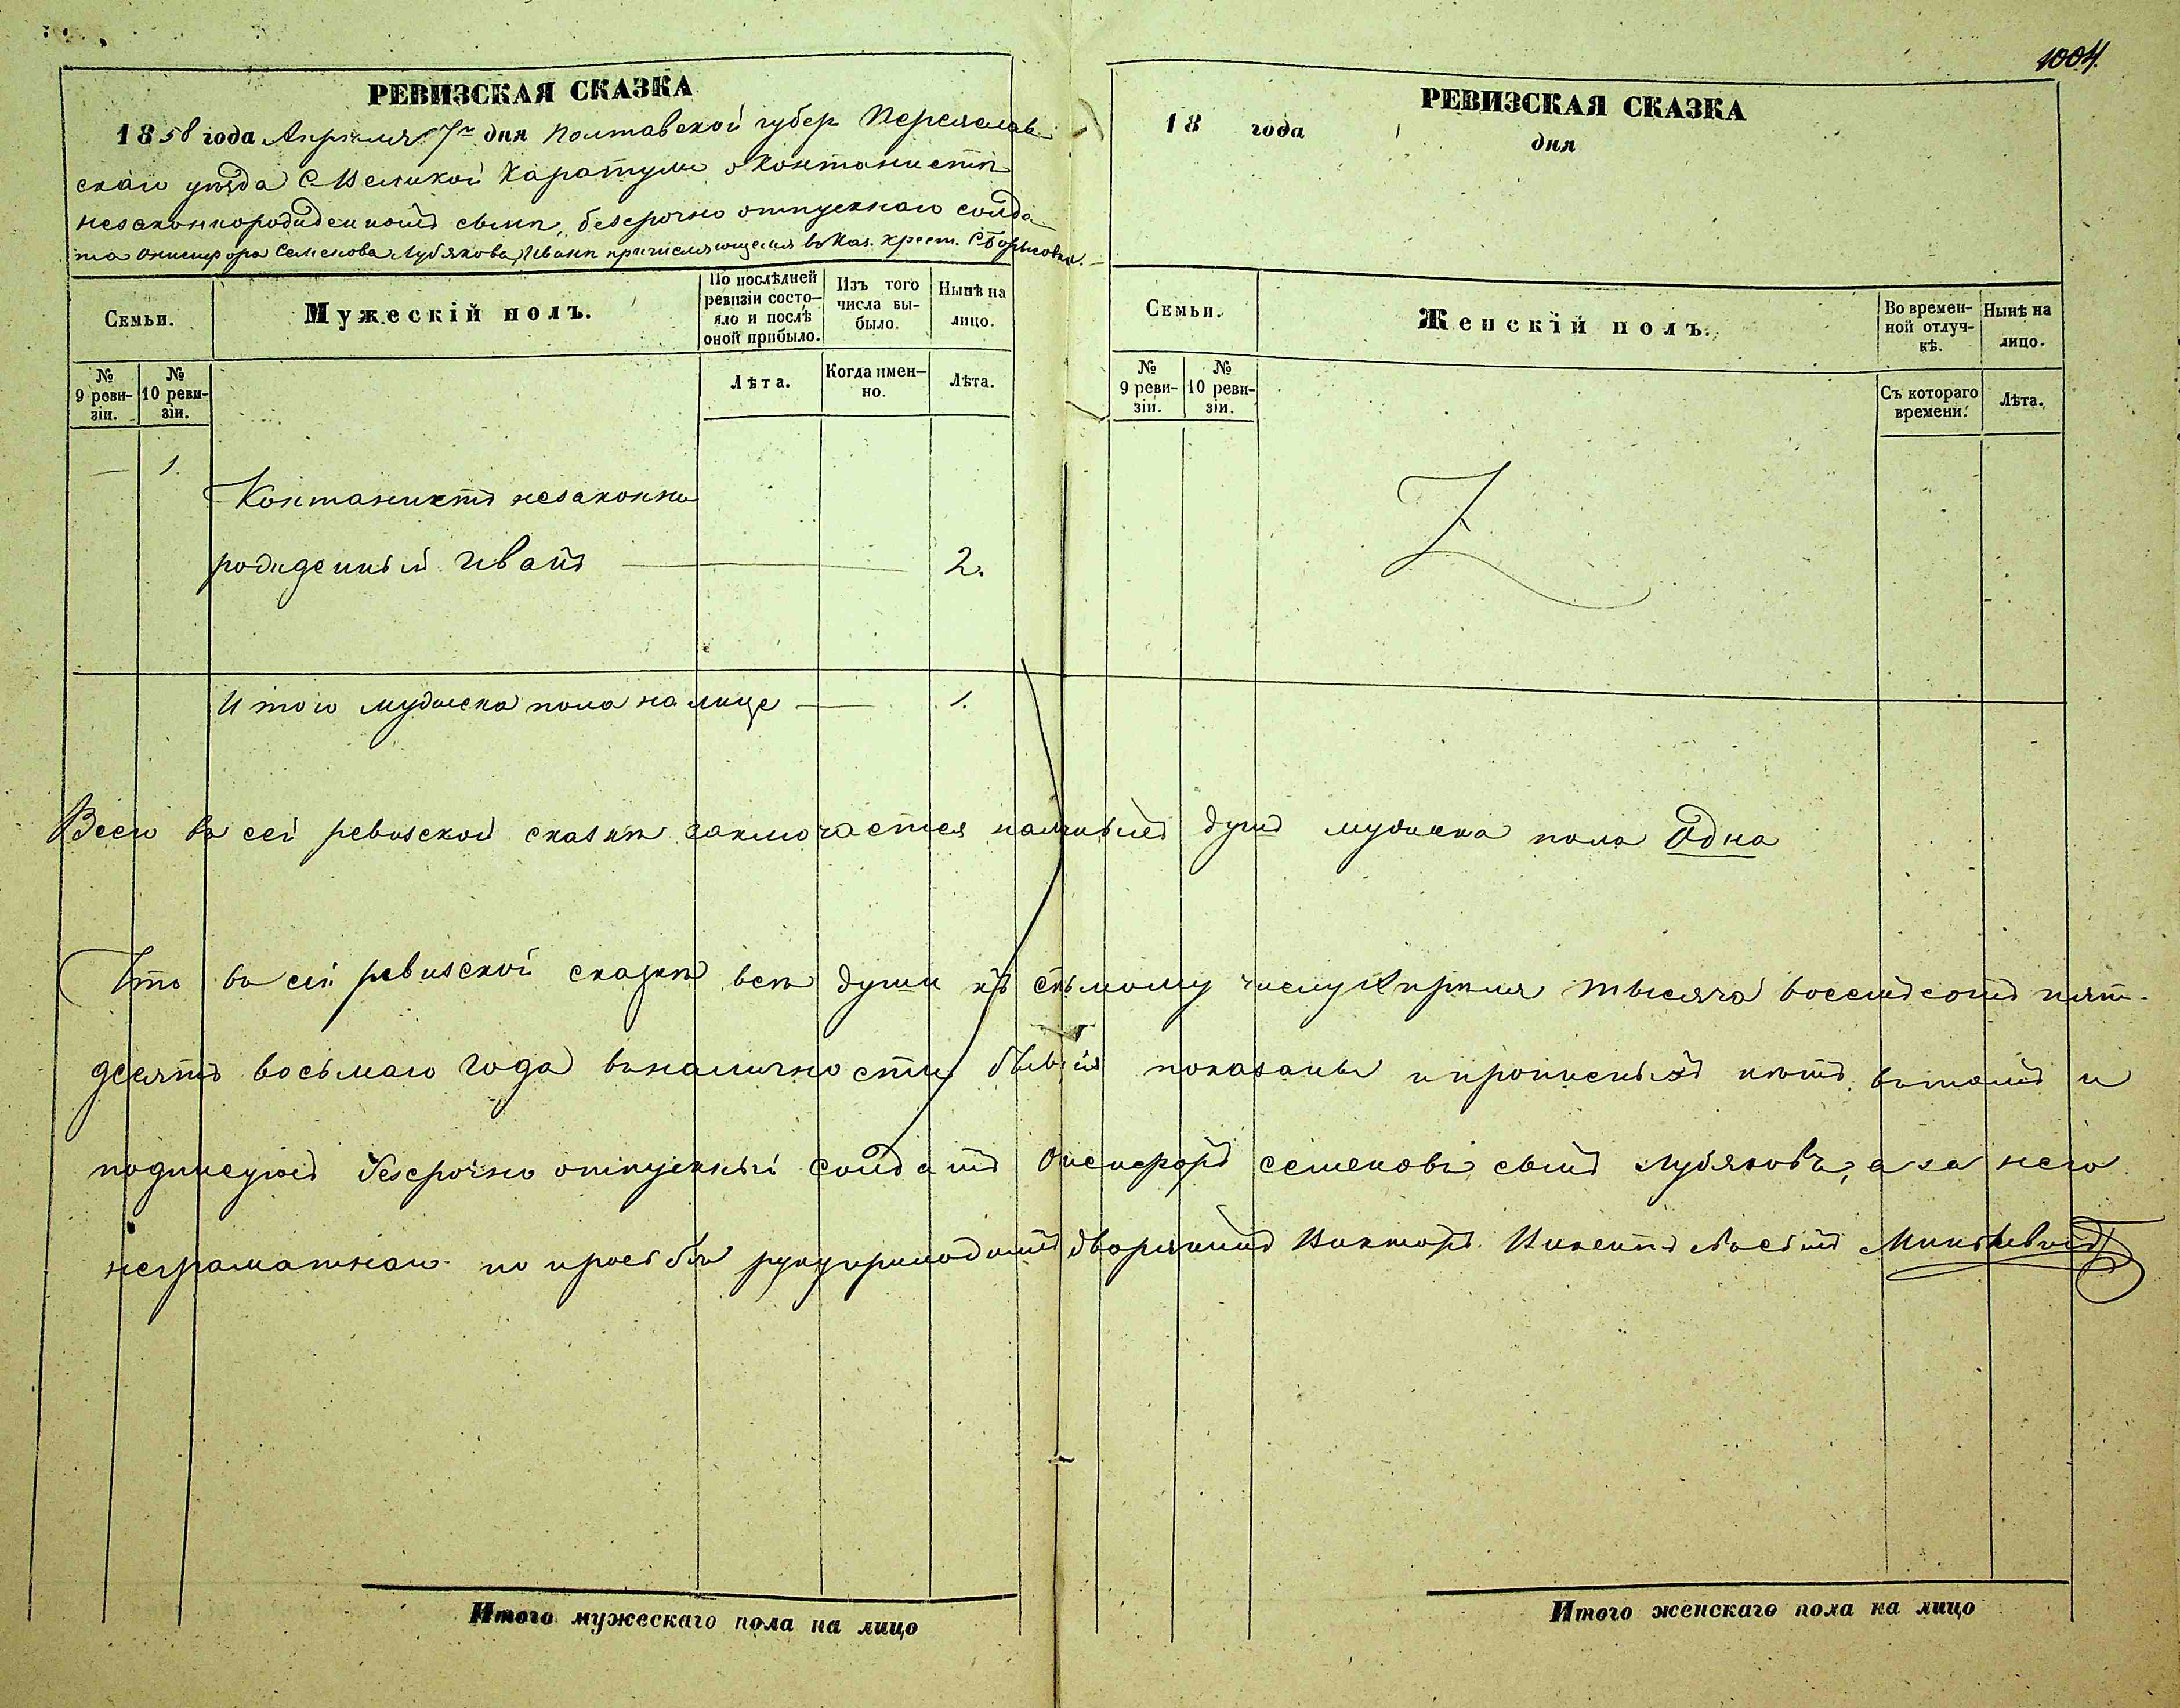 1004
РЕВИЗСКАЯ СКАЗКА
1858 года Апреля 7го дня Полтавской губер Переяслав
скаго уѣзда С Великой Каратули о Контонистѣ
незаконнорожденномъ сынѣ, безсрочно отпускнаго солда
та Онисифора Семенова Лубякова, Иванѣ причисляющемся въ Каз. Крест. С Борисовки.
Семьи.
Мужескій полъ.
По послѣдней ревизіи состо-яло и послѣ оной прибыло.
Изъ того числа вы-было.
Нынѣ на лицо.
№ 9 реви-зіи.
№ 10 реви-зіи.
Лѣта.
Когда имен-но.
Лѣта.
— 1.
Контанистъ незаконно
рожденный Иванъ — 2.
Итого мужеска пола на лице — 1.
РЕВИЗСКАЯ СКАЗКА
18 года дня
Семьи.
Женскій полъ.
Во времен-ной отлуч-кѣ.
Нынѣ на лицо.
№ 9 реви-зіи.
№ 10 реви-зіи.
Съ котораго времени.
Лѣта.
Всего въ сей ревизской сказкѣ заключается наличныхъ душъ мужеска пола Одна
Что въ сей ревизской сказкѣ всѣ души къ седьмому числу Апреля тысяча восемьсотъ пят-
десятъ восьмаго года въ наличности бывшія показаны и прописныхъ нѣтъ, въ томъ и
подписуюсь безсрочно отпускный солдатъ Онисифоръ Семеновъ сынъ Лубяковъ, а за него
неграматнаго по просьбѣ руку приложилъ дворянинъ Викторъ
Итого мужескаго пола на лицо
Итого женскаго пола на лицо